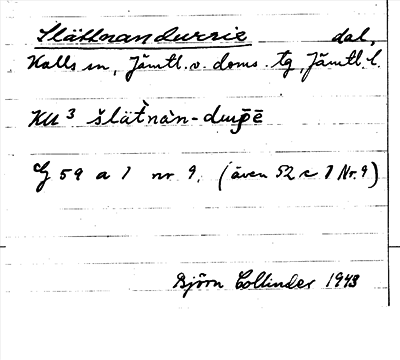 Slättnandurrie dal,
Kalls sn, Jämtl. v. doms. tg, Jämtl. l.
KU³ šlät̀nàn-durp̄ē
G 59 a 1 nr 9. (även 52 c 1 Nr. 9)
Björn Collinder 1943